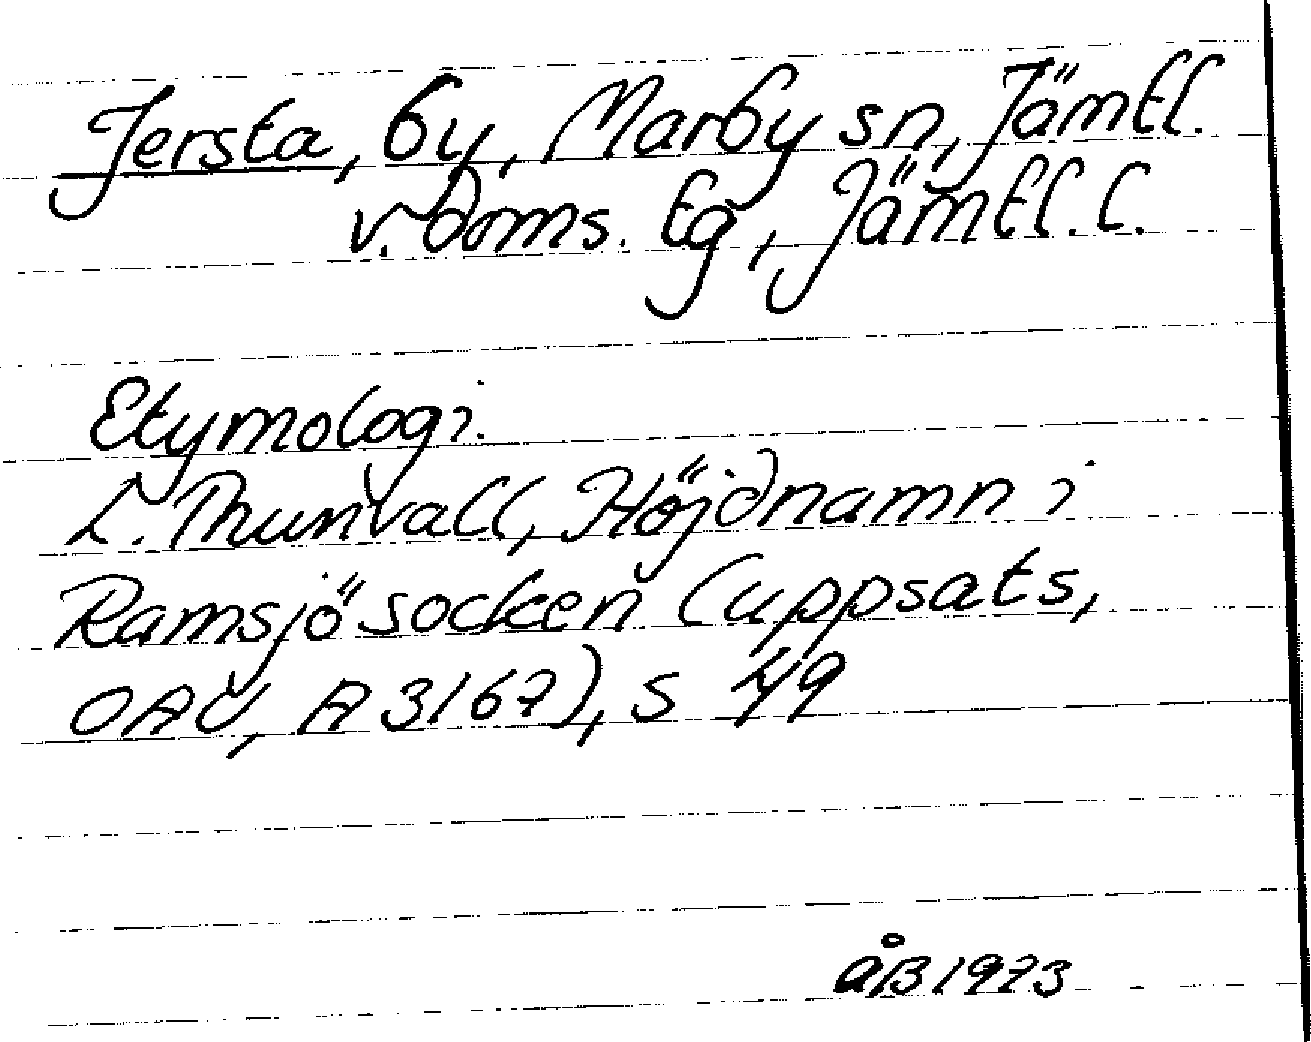 Jersta, by, Marby sn, Jämtl.
v. doms. tg, Jämtl. l.
Etymologi.
L. Thunvall, Höjdnamn i
Ramsjö socken (uppsats,
OAU, A 3167), s 49
åB 1973